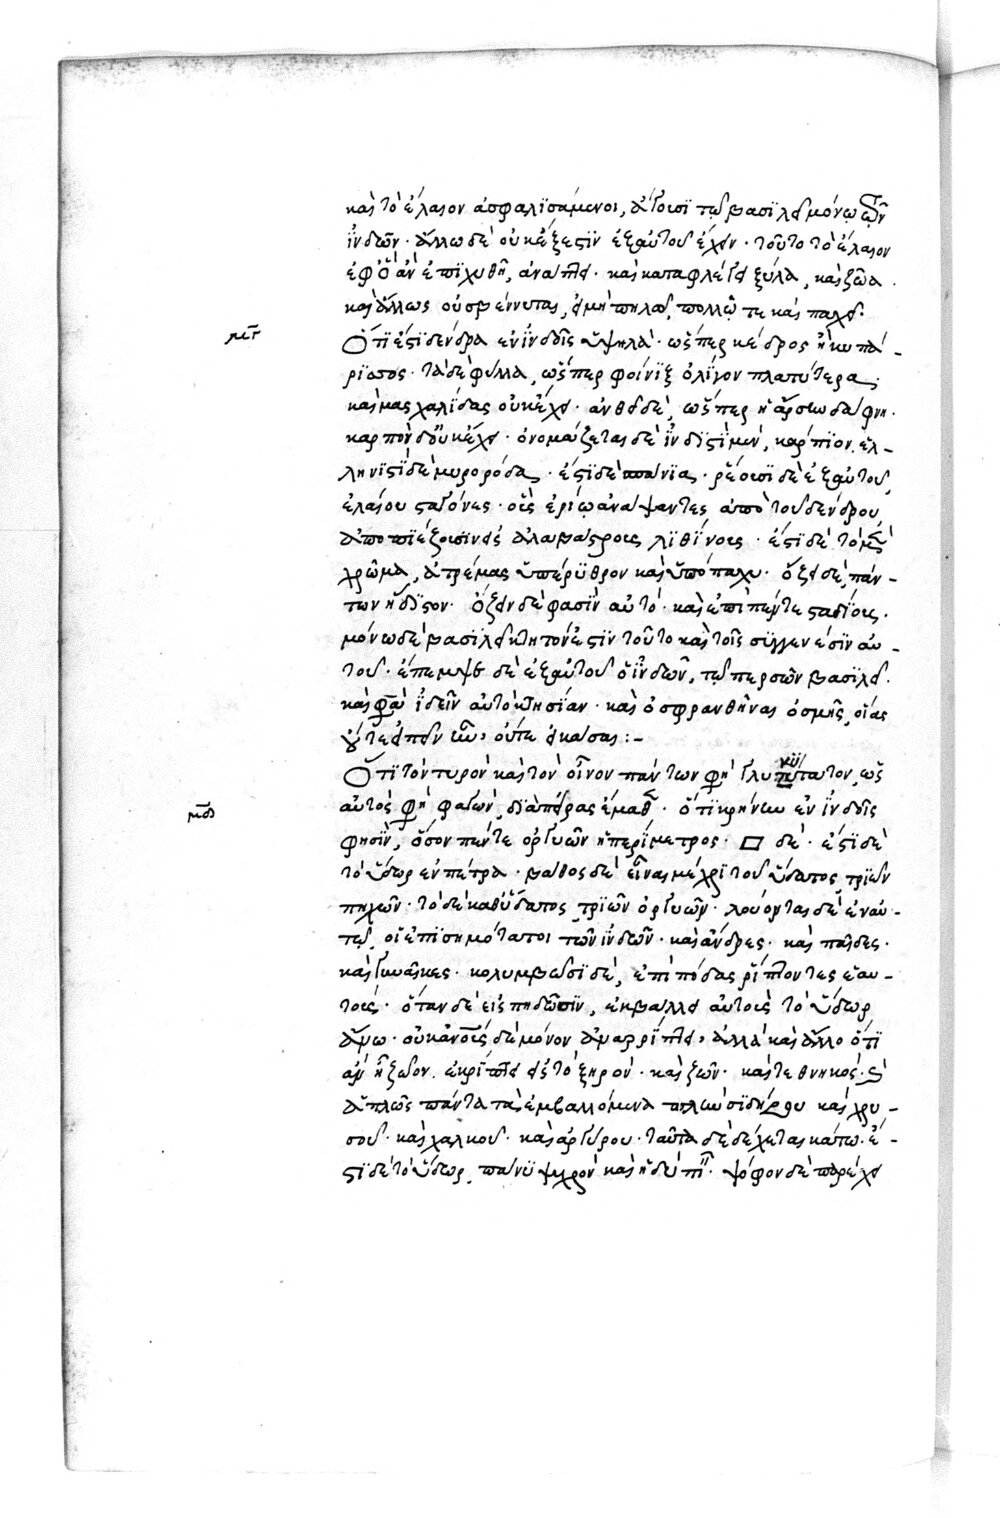 καὶ τὸ ἔλαιον ἀσφαλισάμενοι, ἄγουσι τῷ βασιλεῖ μόνῳ τῶν
ἰνδῶν · ἄλλω δὲ οὐκ ἔξεστιν ἐξ αὐτοῦ ἔχειν · τοῦτο τὸ ἔλαιον
ἐφ' ὃ ἂν ἐπιχυθῆ, ἀνάπτει · καὶ καταφλέγει ξύλα, καὶ ζῶα ·
καὶ ἄλλως οὐ σβέννυται, εἰ μὴ πηλῶ, πολλῶ τε καὶ παχεῖ·
μγ Ὅτι ἔστι δένδρα ἐν ἰνδοῖς ὑψηλὰ · ὥσπερ κέδρος ἢ κυπά-
ρισσος · τὰ δὲ φύλλα, ὥσπερ φοίνιξ ὀλίγον πλατύτερα,
καὶ μασχαλίδας οὐκ ἔχει · ἀνθεῖ δὲ, ὥσπερ ἡ ἄρσην δάφνη ·
καρπὸν δ' οὐκ ἔχει · ὀνομάζεται δὲ ἰνδιστὶ μὲν, καρπιον, ἑλ-
ληνιστὶ δὲ μυρορόδα, · ἔστι δὲ σπάνια · ῥέουσι δὲ ἐξ αὐτοῦ
ἐλαίου σταγόνες · οὓς ἐρίω ἀναψῶντες ἀπὸ τοῦ δένδρου
ἀποπιέζουσιν εἰς ἀλαβάστρους λιθίνους · ἔστι δὲ τὸ μὲν
χρῶμα, ἀτρέμας ὑπέρυθρον καὶ ὑπόπαχυ · ὄζει δὲ πάν-
των ἥδιστον · ὄζειν δέ φασιν αὐτὸ · καὶ ἐπὶ πέντε σταδίους ·
μόνω δὲ βασιλεῖ κτητόν ἐστιν τοῦτο καὶ τοῖς συγγενέσιν αὐ-
τοῦ · ἔπεμψε δὲ ἐξ αὐτοῦ ὁ ἰνδῶν, τῷ περσῶν βασιλεῖ ·
καί φησιν ἰδεῖν αὐτὸ κτησίαν · καὶ ὀσφρανθῆναι ὀσμῆς, οἵας
οὔτε εἰπεῖν ἦν, οὔτε εἰκάσαι :–
μδ Ὅτι τὸν τυρὸν καὶ τὸν οἶνον πάντων φησὶ γλυκύτατον, ὡς
αὐτὸς φησὶ φαγὼν, διὰ πείρας ἔμαθε · ὅτι κρήνην ἐν ἰνδοῖς
φησὶν, ὅσον πέντε ὀργυῶν ἡ περίμετρος · □ δὲ · ἔστι δὲ
τὸ ὕδωρ ἐν πέτρα · βάθος δὲ εἶναι μέχρι τοῦ ὕδατος τριῶν
πηχῶν · τὸ δὲ καθ' ὕδατος, τριῶν ὀργυῶν · λούονται δὲ ἐν αὐ-
τῷ, οἱ ἐπισημότατοι τῶν ἰνδῶν · καὶ ἄνδρες · καὶ παῖδες ·
καὶ γυναῖκες · κολυμβῶσι δὲ, ἐπὶ πόδας ῥίπτοντες ἑαυ-
τούς · ὅταν δὲ εἰσπηδῶσιν, ἐκβάλλει αὐτοὺς τὸ ὕδωρ
ἄνω · οὐκ ἀνθρώπους δὲ μόνον ἀναρρίπτει, ἀλλὰ καὶ ἄλλο ὅτι
ἂν ἦ ζῶον, ἐκρίπτει εἰς τὸ ξηρόν · καὶ ζῶν · καὶ τεθνηκός · καὶ
ἁπλῶς πάντα τὰ ἐμβαλλόμενα πλὴν σιδήρου καὶ χρυ-
σοῦ · καὶ χαλκοῦ · καὶ ἀργύρου · ταῦτα δὲ δέχεται κάτω · ἔ-
στι δὲ τὸ ὕδωρ, πάνυ ψυχρὸν καὶ ἡδὺ πιεῖν · ψόφον δὲ παρέχει